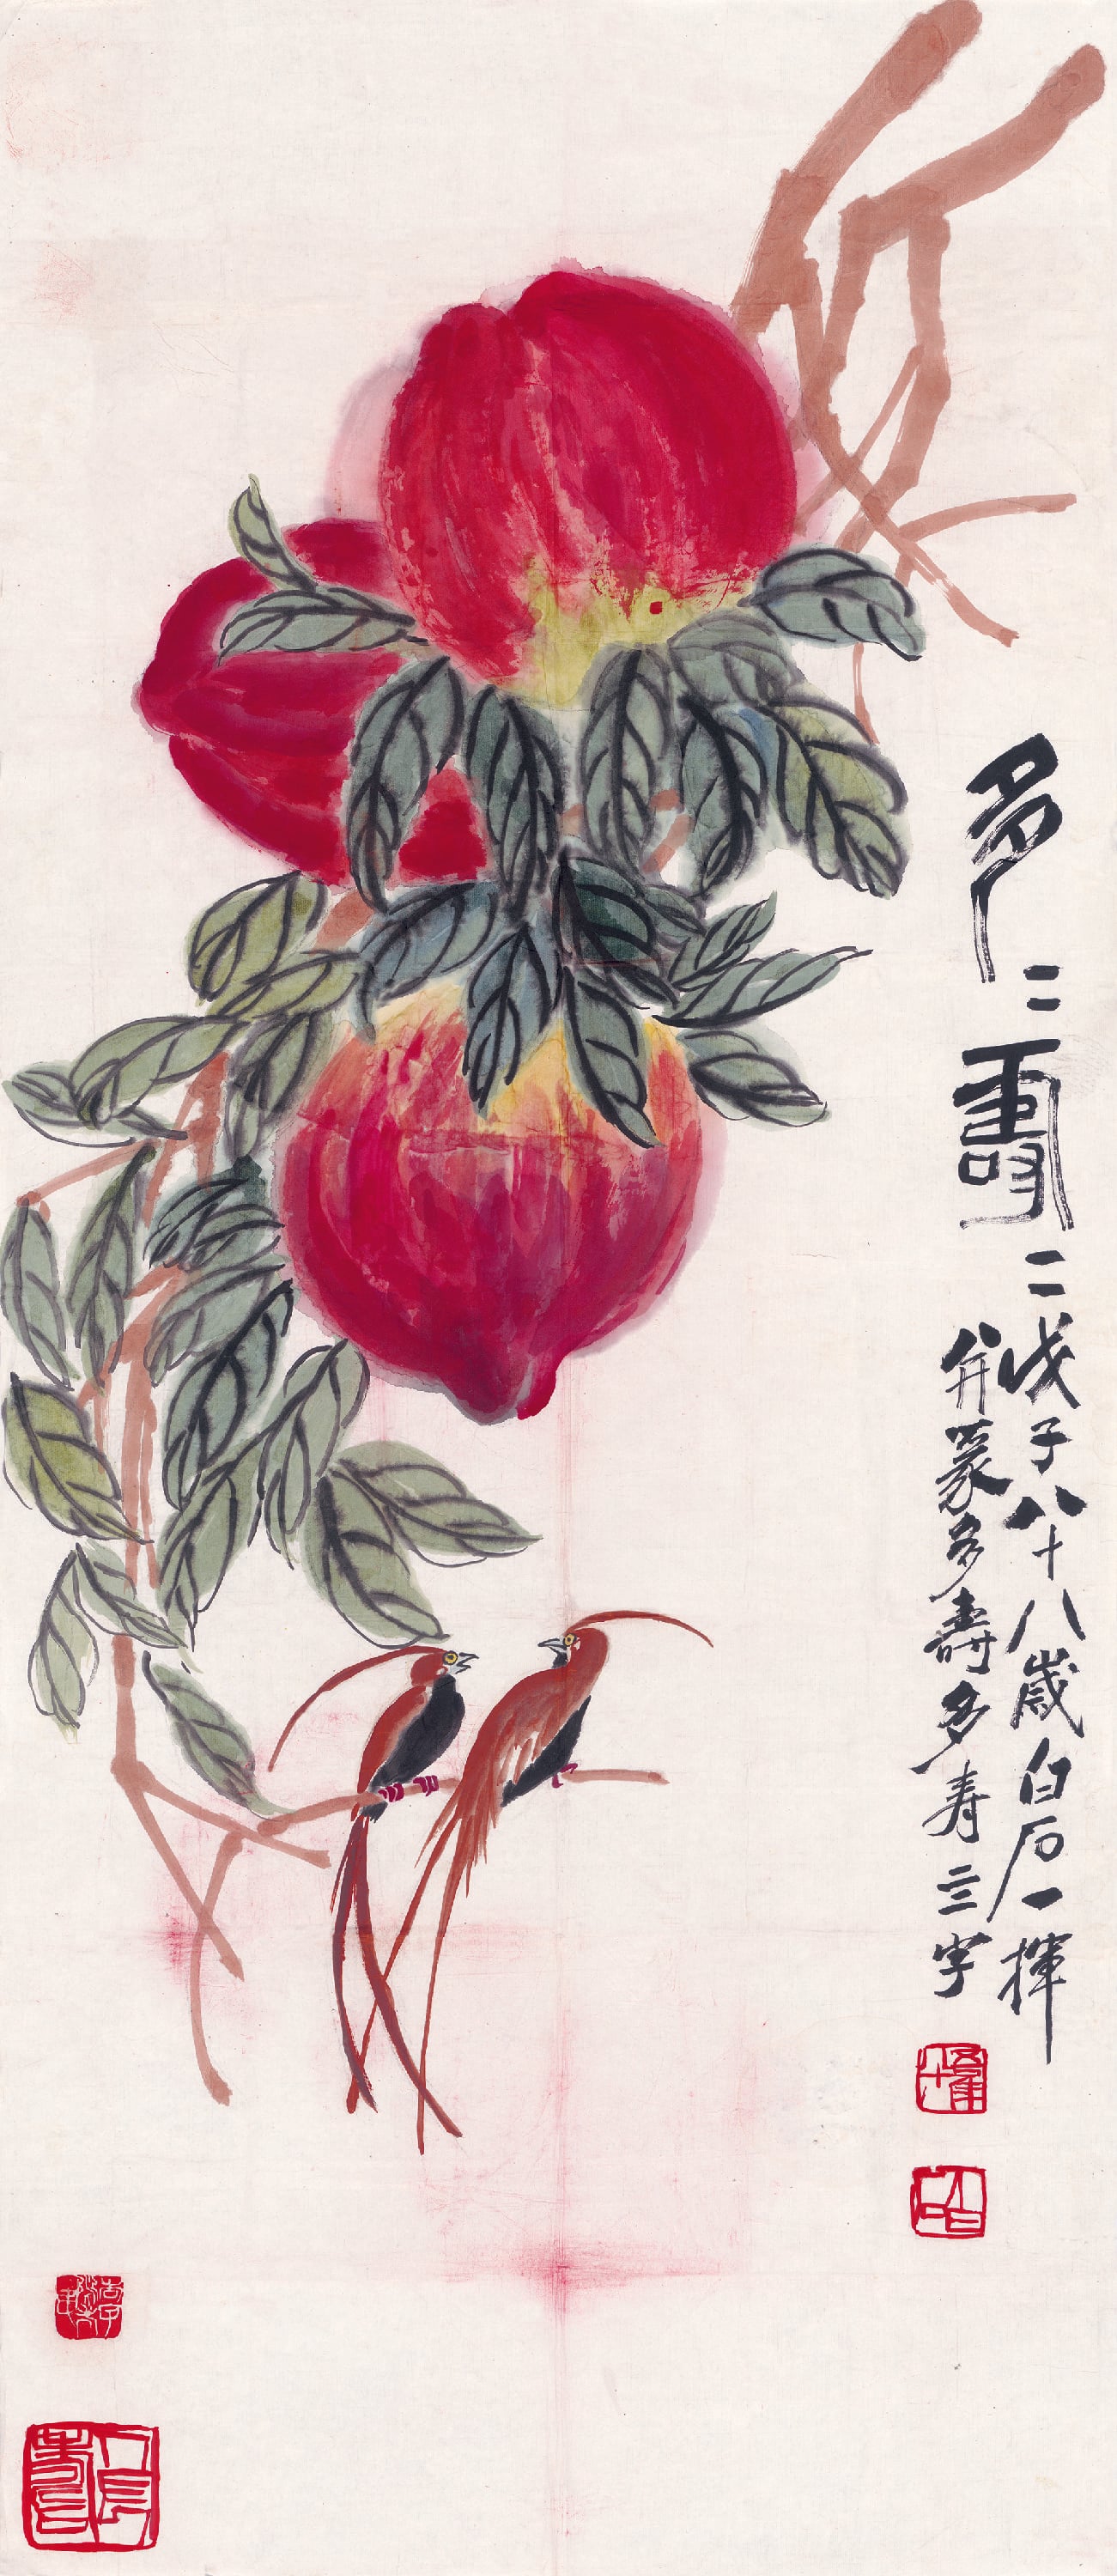 多二壽二
戊子八十八歲白石一揮
并篆多壽多寿三字
白石
人長壽